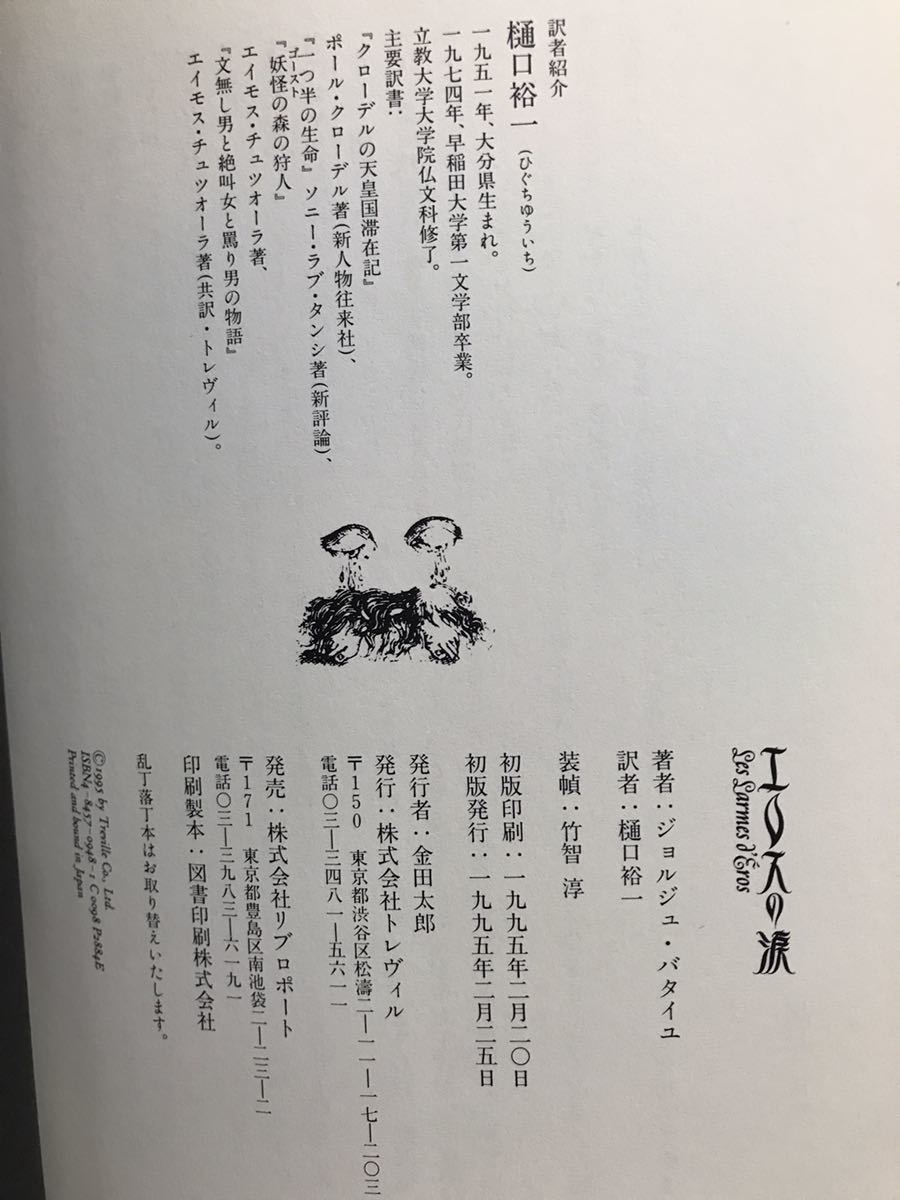 訳者紹介
樋口裕一(ひぐちゆういち)
一九五一年、大分県生まれ。
一九七四年、早稲田大学第一文学部卒業。
立教大学大学院仏文科修了。
主要訳書：
『クローデルの天皇国滞在記』
ポール・クローデル著(新人物往来社)、
『一つ半の生命』ソニー・ラブ・タンシ著(新評論)、
『妖怪の森の狩人』
ゴースト
エイモス・チュツオーラ著、
『文無し男と絶叫女と罵り男の物語』
エイモス・チュツオーラ著(共訳・トレヴィル)。
エロスの涙
Les Larmes d'Éros
著者：ジョルジュ・バタイユ
訳者：樋口裕一
装幀：竹智 淳
初版印刷：一九九五年二月二〇日
初版発行：一九九五年二月二五日
発行者：金田太郎
発行：株式会社トレヴィル
〒150 東京都渋谷区松濤二—一一—一七—二〇三
電話〇三—三四八一—五六一一
発売：株式会社リブロポート
〒171 東京都豊島区南池袋二—二三—二
電話〇三—三九八三—六一九一
印刷製本：図書印刷株式会社
乱丁落丁本はお取り替えいたします。
©1995 by Treville Co., Ltd.
ISBN4-8457-0948-1 C0098 P2884E
Printed and bound in Japan